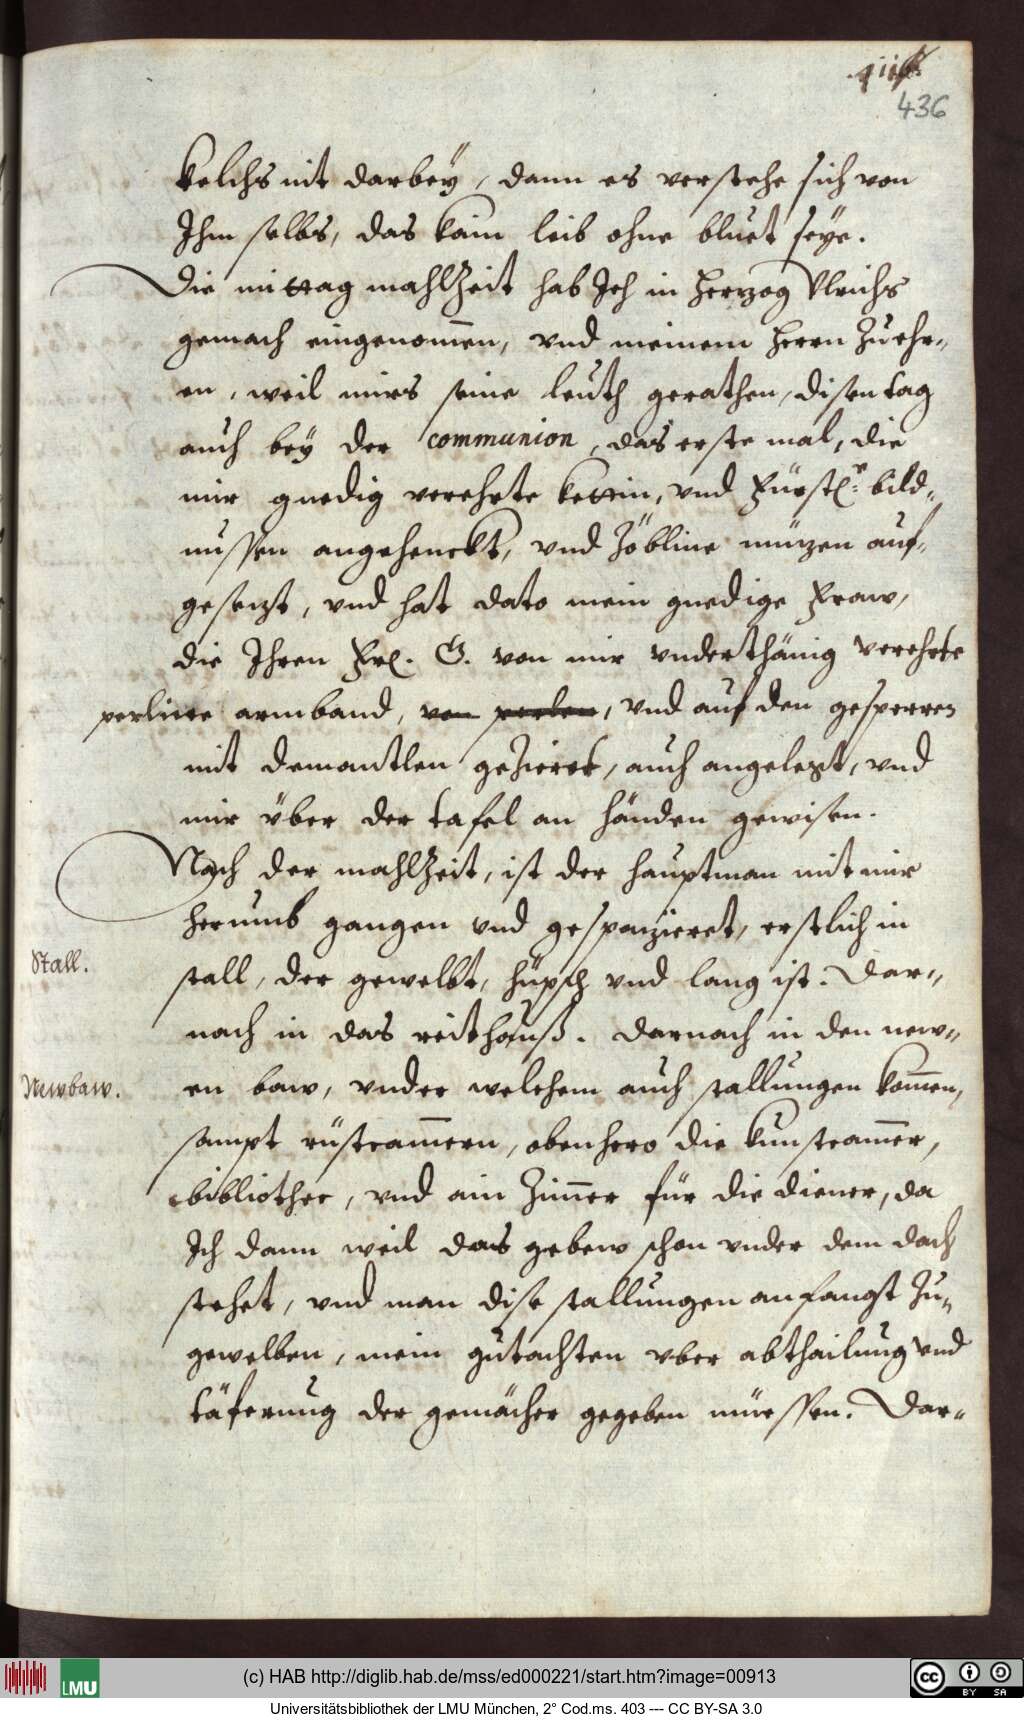 436
kelchs nit darbeÿ, dann es verstehe sich von
Ihm selbs, das kain leib ohne bluet seÿe.
Die mittag mahlzeit hab Ich in Herzog Vlrichs
gemach eingenom̄en, vnd meinem Herrn zu ehr-
en, weil mirs seine leuth gerathen, disen tag
auch beÿ der communion, das erste mal, die
mir gnedig verehrte kettin, vnd Fürstl: bild-
nussen angehenckt, vnd zöbline müzen auf-
gesezt, vnd hat dato mein gnedige Fraw,
die Ihren Frl. G. von mir vnderthänig verehrte
perline armband, von perlen, vnd auf den gesperren
mit demantlen gezieret, auch angelegt, vnd
mir über der tafel an händen gewisen.
Nach der mahlzeit, ist der hauptman mit mir
herumb gangen vnd gespazieret, erstlich in
Stall.
stall, der gewelbt, hüpsch vnd lang ist. Dar-
nach in das reithauß. Darnach in den new-
Newbaw.
en baw, vnder welchem auch stallungen kom̄en,
sampt rüstcam̄ern, obenhero die kunstcam̄er,
bibliothec, vnd ain Zim̄er für die diener, da
Ich dann weil das gebew schon vnder dem dach
stehet, vnd man dise stallungen anfangt zu-
gewelben, mein gutachten vber abthailung vnd
täferung der gemächer gegeben müessen. Dar-
(c) HAB http://diglib.hab.de/mss/ed000221/start.htm?image=00913
LMU
cc BY SA
Universitätsbibliothek der LMU München, 2° Cod.ms. 403 --- CC BY-SA 3.0